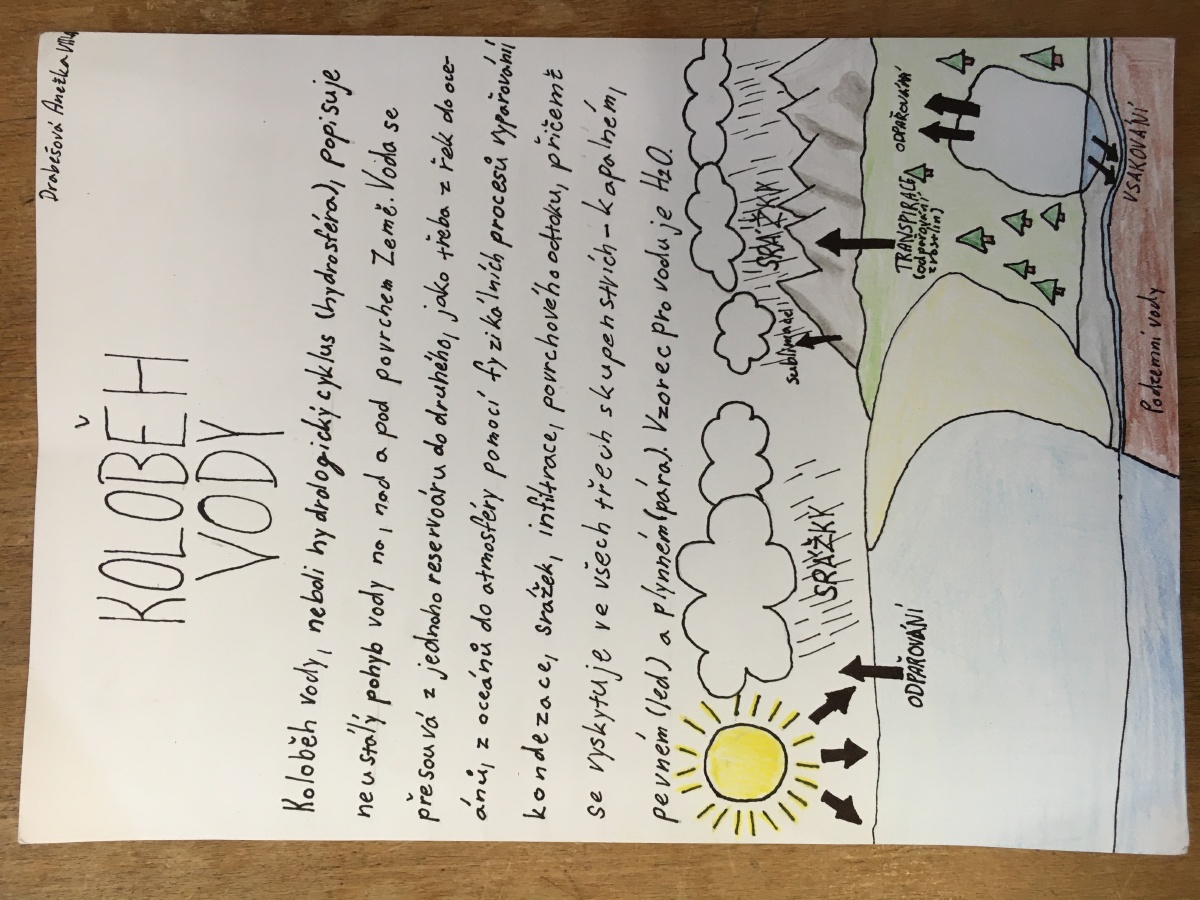 Drabešová Anežka
KOLOBĚH
VODY
Koloběh vody, neboli hydrologický cyklus (hydrosféra), popisuje
neustálý pohyb vody na, nad a pod povrchem Země. Voda se
přesouvá z jednoho reservoáru do druhého, jako třeba z řek do oce-
ánů, z oceánů do atmosféry pomocí fyzikálních procesů vypařování,
kondezace, srážek, infiltrace, povrchového odtoku, přičemž
se vyskytuje ve všech třech skupenstvích - kapalném,
pevném (led) a plynném (pára). Vzorec pro vodu je H2O.
SRÁŽKY
SRÁŽKY
sublimace
ODPAŘOVÁNÍ
TRANSPIRACE
(odpařování
z rostlin)
ODPAŘOVÁNÍ
VSAKOVÁNÍ
Podzemní vody